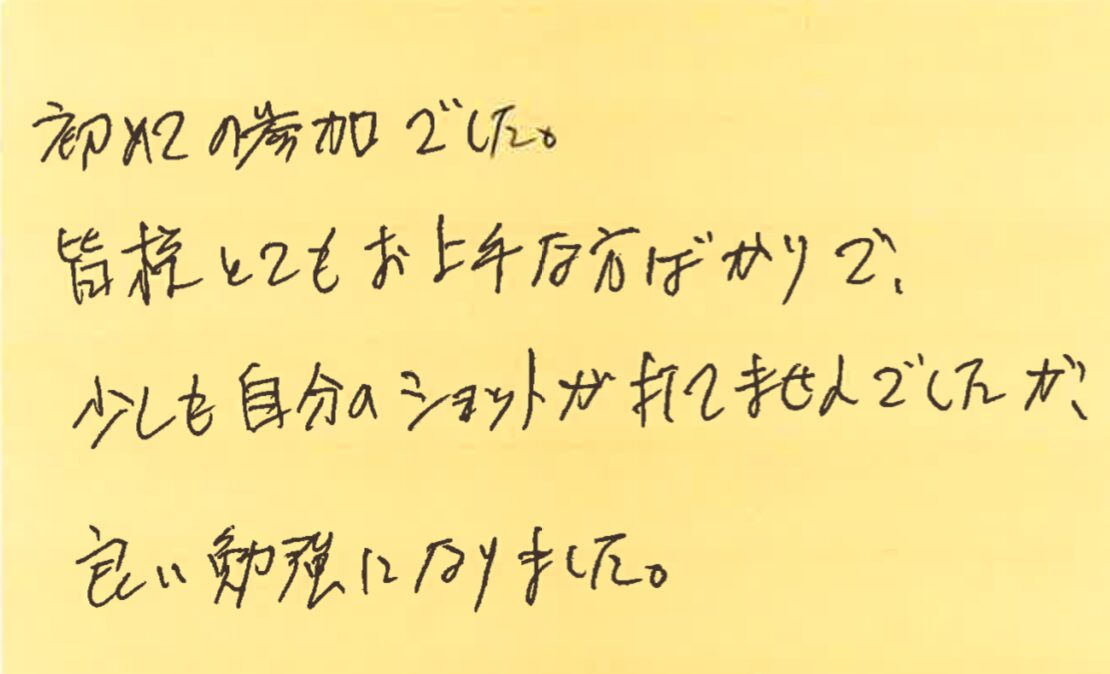 初めての参加でした。
皆様とてもお上手な方ばかりで、
少しも自分のショットが打てませんでしたが、
良い勉強になりました。